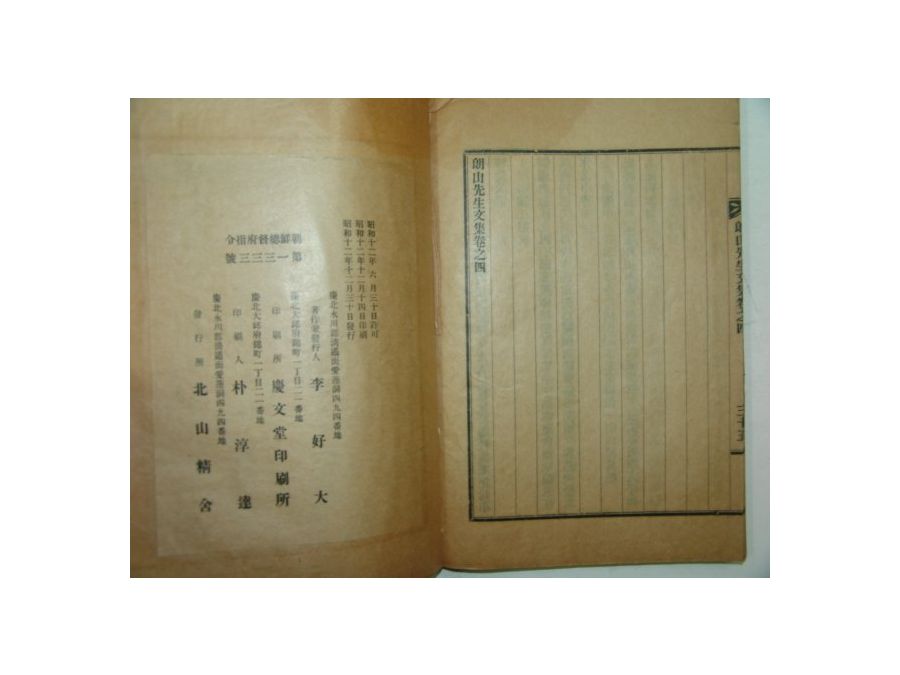 朗山先生文集卷之四
朗山先生文集卷之四
三十五
昭和十二年 六 月三十日許可
昭和十二年十二月十四日印刷
昭和十二年十二月三十日發行
朝鮮總督府指令
第一三三三號
慶北永川郡淸通面愛蓮洞四九四番地
著作兼發行人 李好大
慶北大邱府錦町一丁目二一番地
印刷所 慶文堂印刷所
慶北大邱府錦町一丁目二一番地
印刷人 朴淳達
慶北永川郡淸通面愛蓮洞四九四番地
發行所 北山精舍